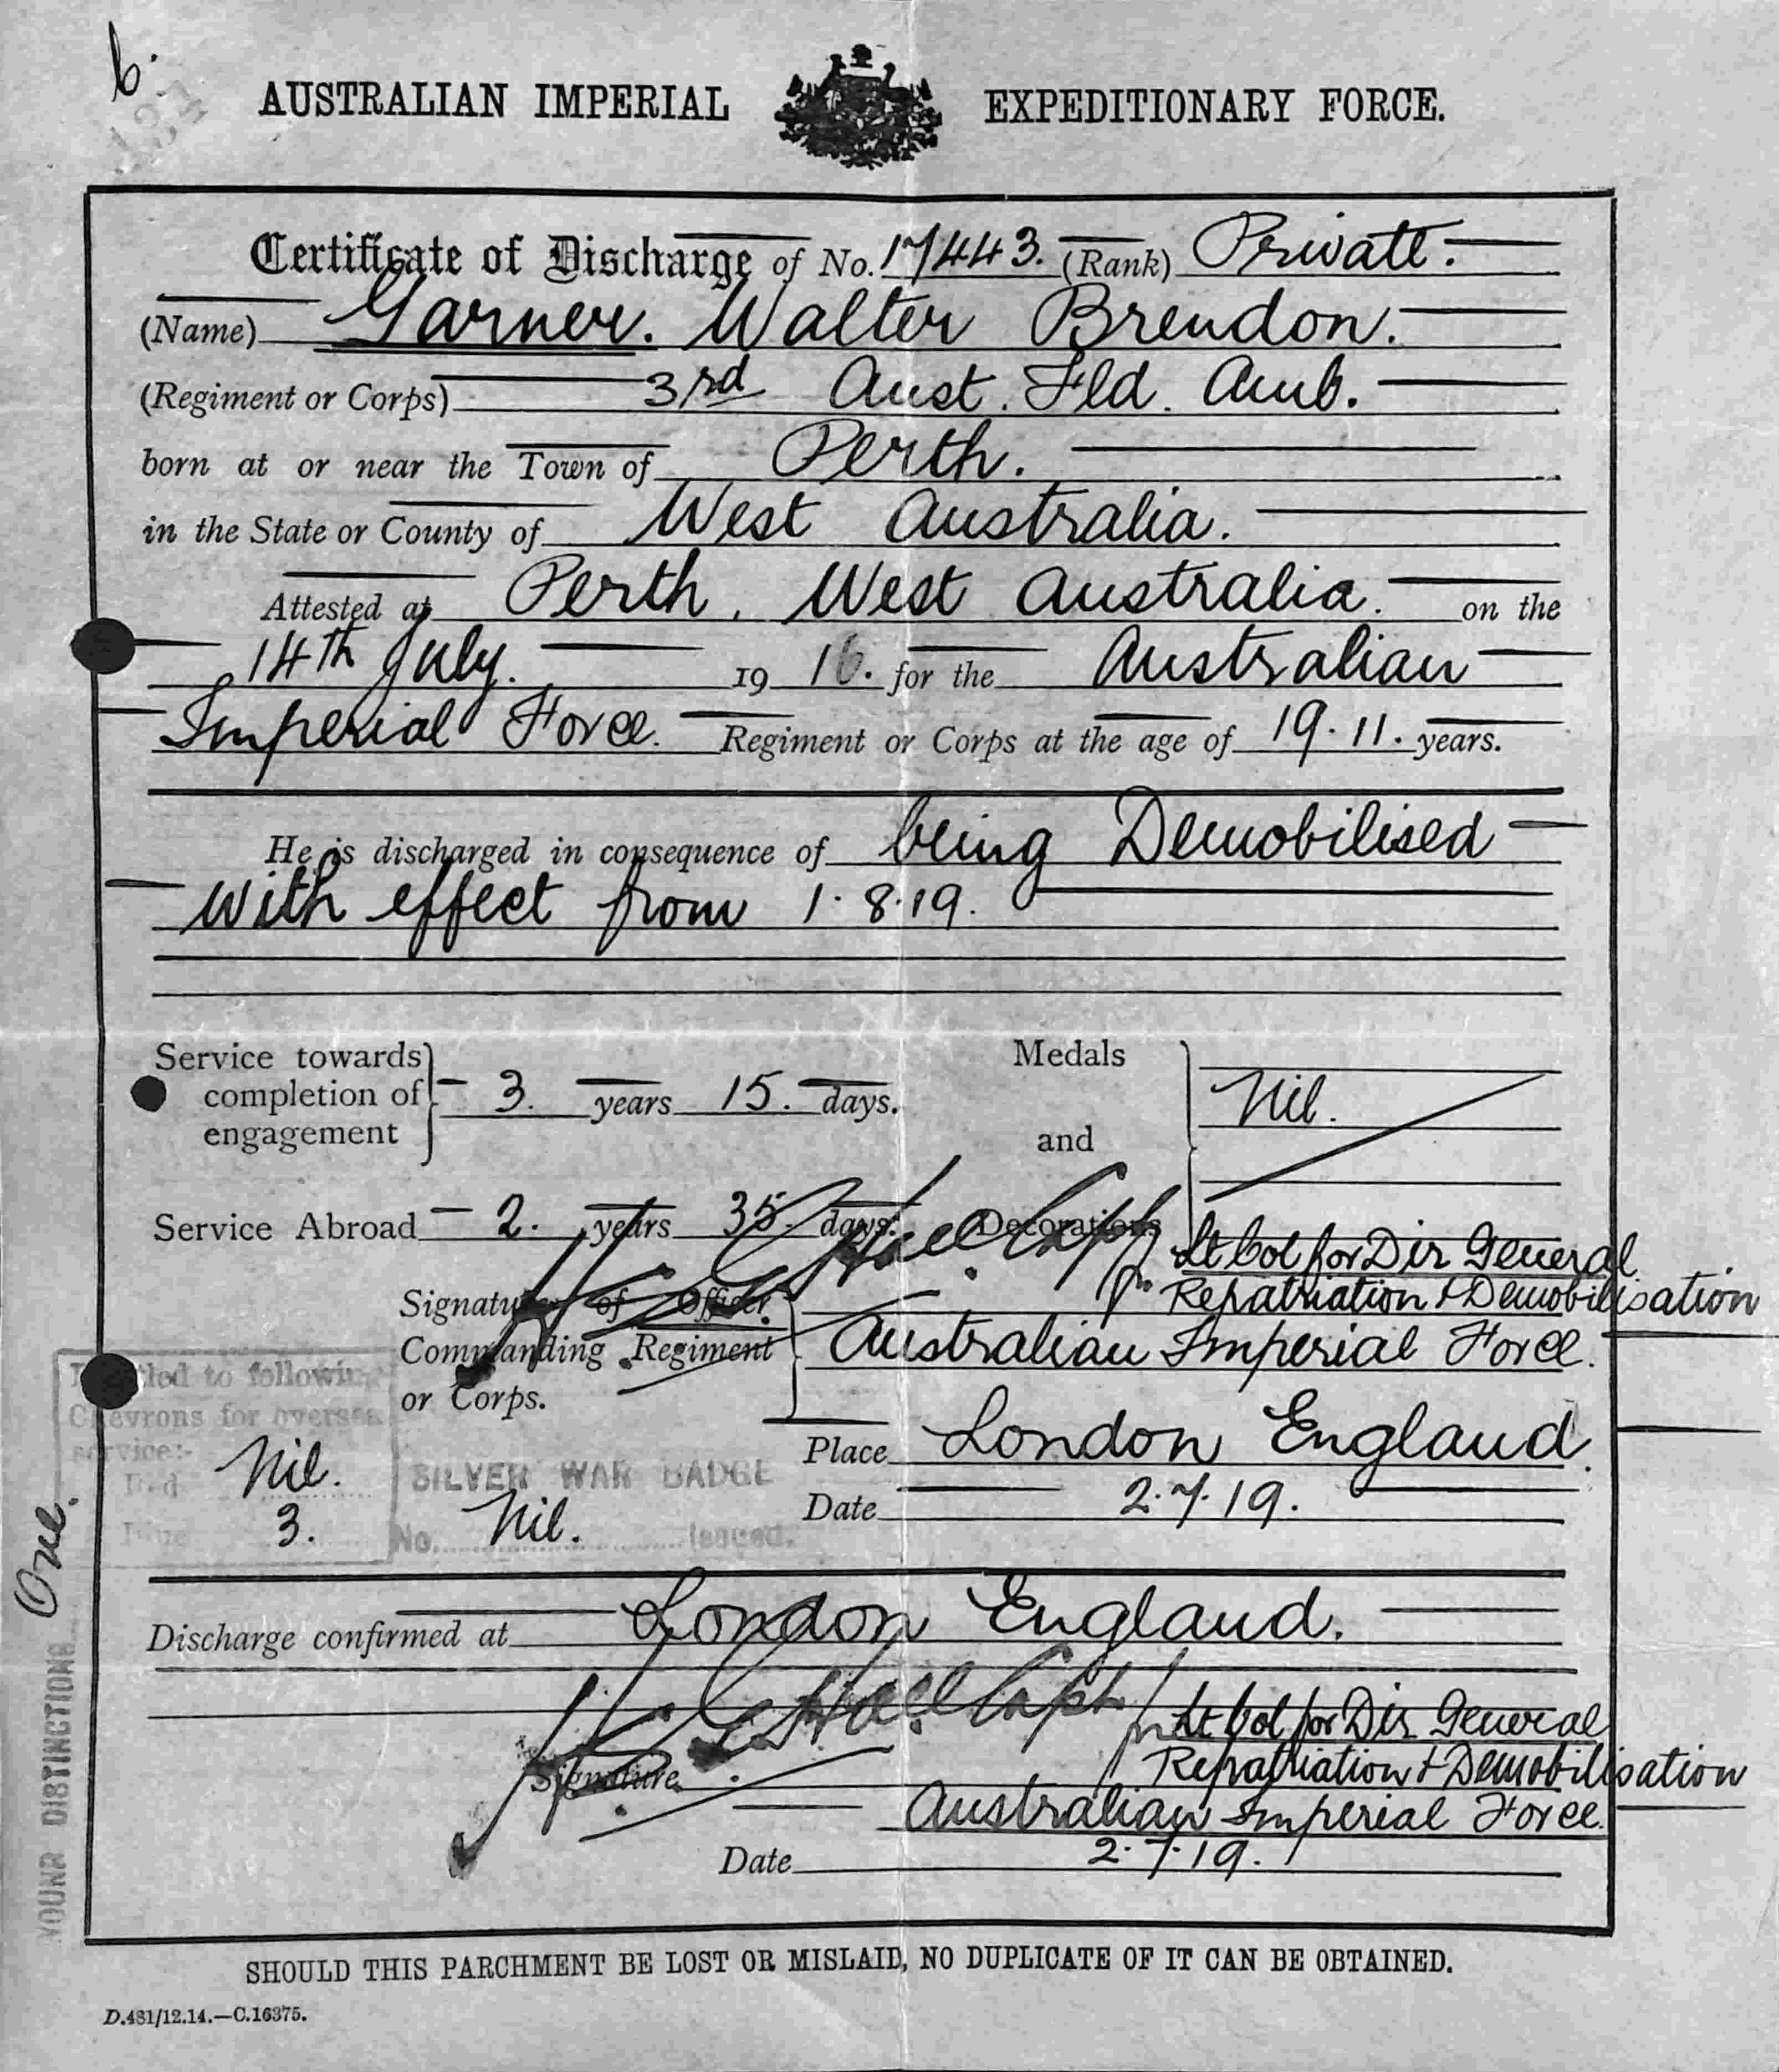 b.
AUSTRALIAN IMPERIAL EXPEDITIONARY FORCE.
Certificate of Discharge of No. 17443. (Rank) Private.
(Name) Garner. Walter Brendon.
(Regiment or Corps) 3rd Aust. Fld. Amb.
born at or near the Town of Perth.
in the State or County of West Australia.
Attested at Perth, West Australia. on the
14th July. 19 16. for the Australian
Imperial Force. Regiment or Corps at the age of 19.11. years.
He is discharged in consequence of being Demobilised
with effect from 1.8.19.
Service towards completion of engagement 3. years 15. days.
Medals and Decorations Nil.
Service Abroad 2. years 35. days.
Signature of Officer Commanding Regiment or Corps.
Hall Capt
for Lt Col for Dir General
Repatriation & Demobilisation
Australian Imperial Force.
Entitled to following
Chevrons for overseas
service:-
Red Nil.
Blue 3.
SILVER WAR BADGE
No. Nil. Issued.
Place London England.
Date 2.7.19.
YOUNR DISTINCTIONS One.
Discharge confirmed at London England.
Hall Capt
for Lt Col for Dir General
Repatriation & Demobilisation
Signature
Australian Imperial Force.
Date 2.7.19.
SHOULD THIS PARCHMENT BE LOST OR MISLAID, NO DUPLICATE OF IT CAN BE OBTAINED.
D.481/12.14.—C.16375.